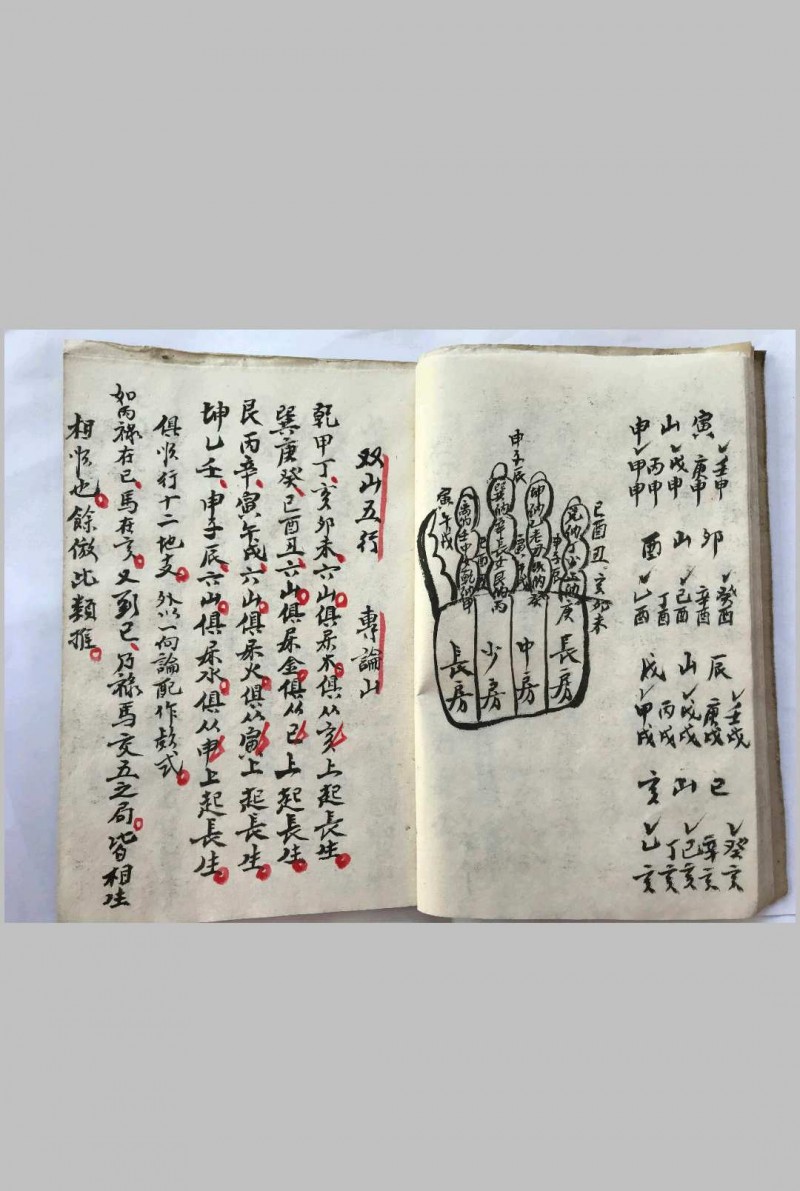 寅山申
壬申
庚申
戊申
丙申
甲申
卯山酉
癸酉
辛酉
己酉
丁酉
乙酉
辰山戌
壬戌
庚戌
戊戌
丙戌
甲戌
巳山亥
癸亥
辛亥
己亥
丁亥
乙亥
巳酉丑
亥卯未
申子辰
寅午戌
長房
中房
少房
長房
双山五行 專論山
乾甲丁亥卯未六山俱屎木俱从亥上起長生
巽庚癸巳酉丑六山俱屎金俱从巳上起長生
艮丙辛寅午戌六山俱屎火俱从寅上起長生
坤乙壬申子辰六山俱屎水俱从申上起長生
俱順行十二地支外以一向論配作於式
如丙祿在巳馬在亥又到巳乃祿馬交五之局皆相生
相順也餘倣此類推